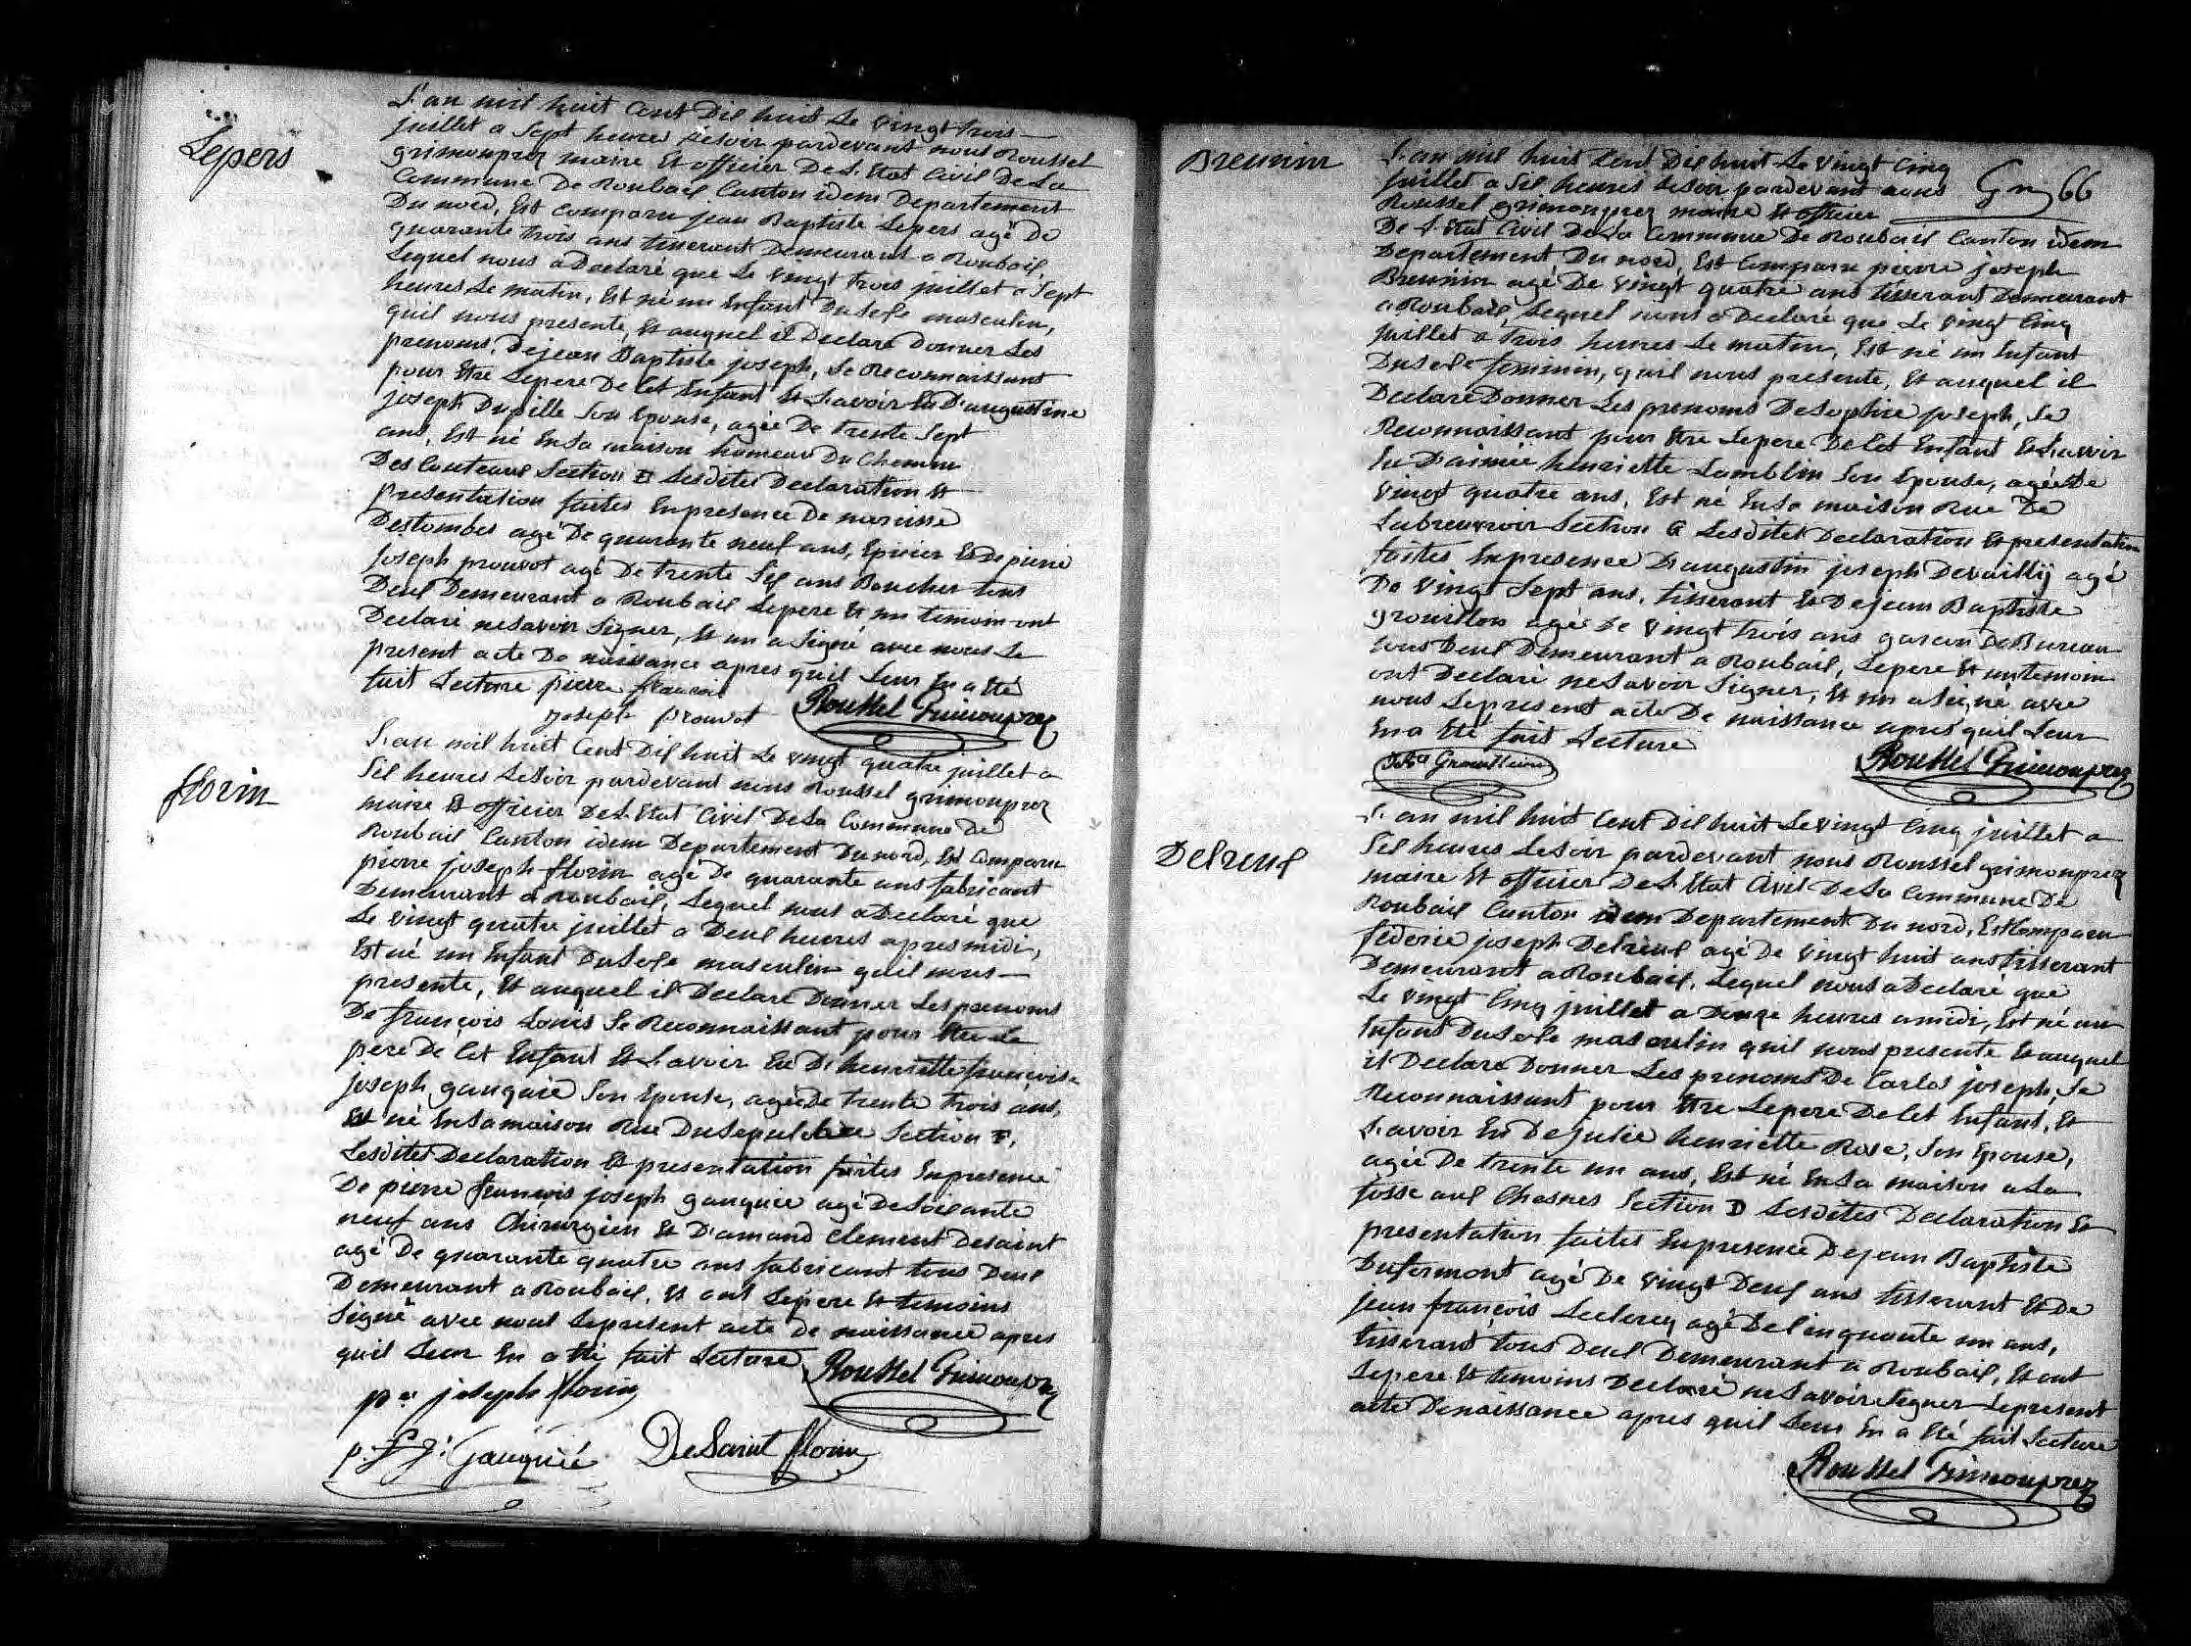 Lepers
L'an mil huit Cent Dix huit Le vingt trois
juillet a Sept heures Lesoir pardevant nous Roussel
grimonprez maire Et officier De L. Etat Civil De La
Commune De Roubaix Canton idem Departement
Du nord, Est comparu jean Baptiste Lepers agé De
quarante trois ans tisserant Demeurant a Roubaix,
Lequel nous a Declaré que Le vingt trois juillet a Sept
heures Le matin, Est né un Enfant Du Sexe masculin,
quil nous presente, Et auquel il Declare Donner Les
prenoms, De jean Baptiste joseph, Se Reconnaissant
pour Etre Lepere De Cet Enfant Et L'avoir Eu D'augustine
joseph Dupille Son Epouse, agée De trente Sept
ans, Est né En Sa maison hameau Du Chemin
Des Couteaux Section E Lesdites Declaration Et
presentation faites Enpresence De narcisse
Destombes agé De quarante neuf ans, Epicier Et De pierre
joseph prouvot agé De trente Six ans Boucher tous
Deux Demeurant a Roubaix Lepere Et un temoin ont
Declaré ne Savoir Signer, Et un a Signé avec nous Le
present acte De naissance apres quil Leur En a Eté
fait Lecture pierre francois
joseph prouvot Roussel Grimonprez
florin
L'an mil huit Cent Dix huit Le vingt quatre juillet a
Six heures Lesoir pardevant nous Roussel grimonprez
maire Et officier De L. Etat Civil De La Commune De
Roubaix Canton idem Departement Du nord, Est comparu
pierre joseph florin agé De quarante ans fabricant
Demeurant a Roubaix, Lequel nous a Declaré que
Le vingt quatre juillet a Deux heures apres midi,
Est né un Enfant Du Sexe masculin quil nous
presente, Et auquel il Declare Donner Les prenoms
De françois Louis Se Reconnaissant pour Etre Le
pere De Cet Enfant Et L'avoir Eu De henriette françoise
joseph gauquié Son Epouse, agée De trente trois ans,
Est né En Sa maison Rue Du Sepulchre Section F,
Lesdites Declaration Et presentation faites Enpresence
De pierre francois joseph gauquié agé De Soixante
neuf ans Chirurgien Et D'amand Clement Desaint
agé De quarante quatre ans fabricant tous Deux
Demeurant a Roubaix, Et ont Lepere Et temoins
Signé avec nous Lepresent acte De naissance apres
quil Leur En a Eté fait Lecture Roussel Grimonprez
pre joseph florin
p. f. j. Gauquié DeSaint florin
Breunin
Gm 66
L'an mil huit Cent Dix huit Le vingt Cinq
juillet a Six heures Lesoir pardevant nous
Roussel grimonprez maire Et officier
De L. Etat Civil De La Commune De Roubaix Canton idem
Departement Du nord, Est Comparu pierre joseph
Breunin agé De vingt quatre ans tisserant Demeurant
a Roubaix, Lequel nous a Declaré que Le vingt Cinq
juillet a trois heures Le matin, Est né un Enfant
Du Sexe feminin, quil nous presente, Et auquel il
Declare Donner Les prenoms De Sophie joseph, Se
Reconnaissant pour Etre Lepere De Cet Enfant Et L'avoir
Eu D'aimée henriette Lamblin Son Epouse, agée De
vingt quatre ans, Est né En Sa maison Rue De
Labreuvoir Section G Lesdites Declaration Et presentation
faites Enpresence D'augustin joseph Devailly agé
De vingt Sept ans, tisserant Et De jean Baptiste
grouillon agé De vingt trois ans garcon De Bureau
tous Deux Demeurant a Roubaix, Lepere Et un temoin
ont Declaré ne Savoir Signer, Et un a Signé avec
nous Lepresent acte De naissance apres quil Leur
En a Eté fait Lecture
Roussel Grimonprez
Delreux
L'an mil huit Cent Dix huit Le vingt Cinq juillet a
Six heures Lesoir pardevant nous Roussel grimonprez
maire Et officier De L. Etat Civil De La Commune De
Roubaix Canton idem Departement Du nord, Est Comparu
federic joseph Delreux agé De vingt huit ans tisserant
Demeurant a Roubaix, Lequel nous a Declaré que
Le vingt Cinq juillet a Douze heures a midi, Est né un
Enfant Du Sexe masculin quil nous presente Et auquel
il Declare Donner Les prenoms De Carlos joseph, Se
Reconnaissant pour Etre Lepere De Cet Enfant, Et
L'avoir Eu De julie henriette Rose, Son Epouse,
agée De trente un ans, Est né En Sa maison a La
fosse aux Chesnes Section D Lesdites Declaration Et
presentation faites Enpresence De jean Baptiste
Dufermont agé De vingt Deux ans tisserant Et De
jean françois Leclercq agé De Cinquante un ans,
tisserant tous Deux Demeurant a Roubaix, Et ont
Lepere Et temoins Declaré ne Savoir Signer Lepresent
acte De naissance apres quil Leur En a Eté fait Lecture
Roussel Grimonprez